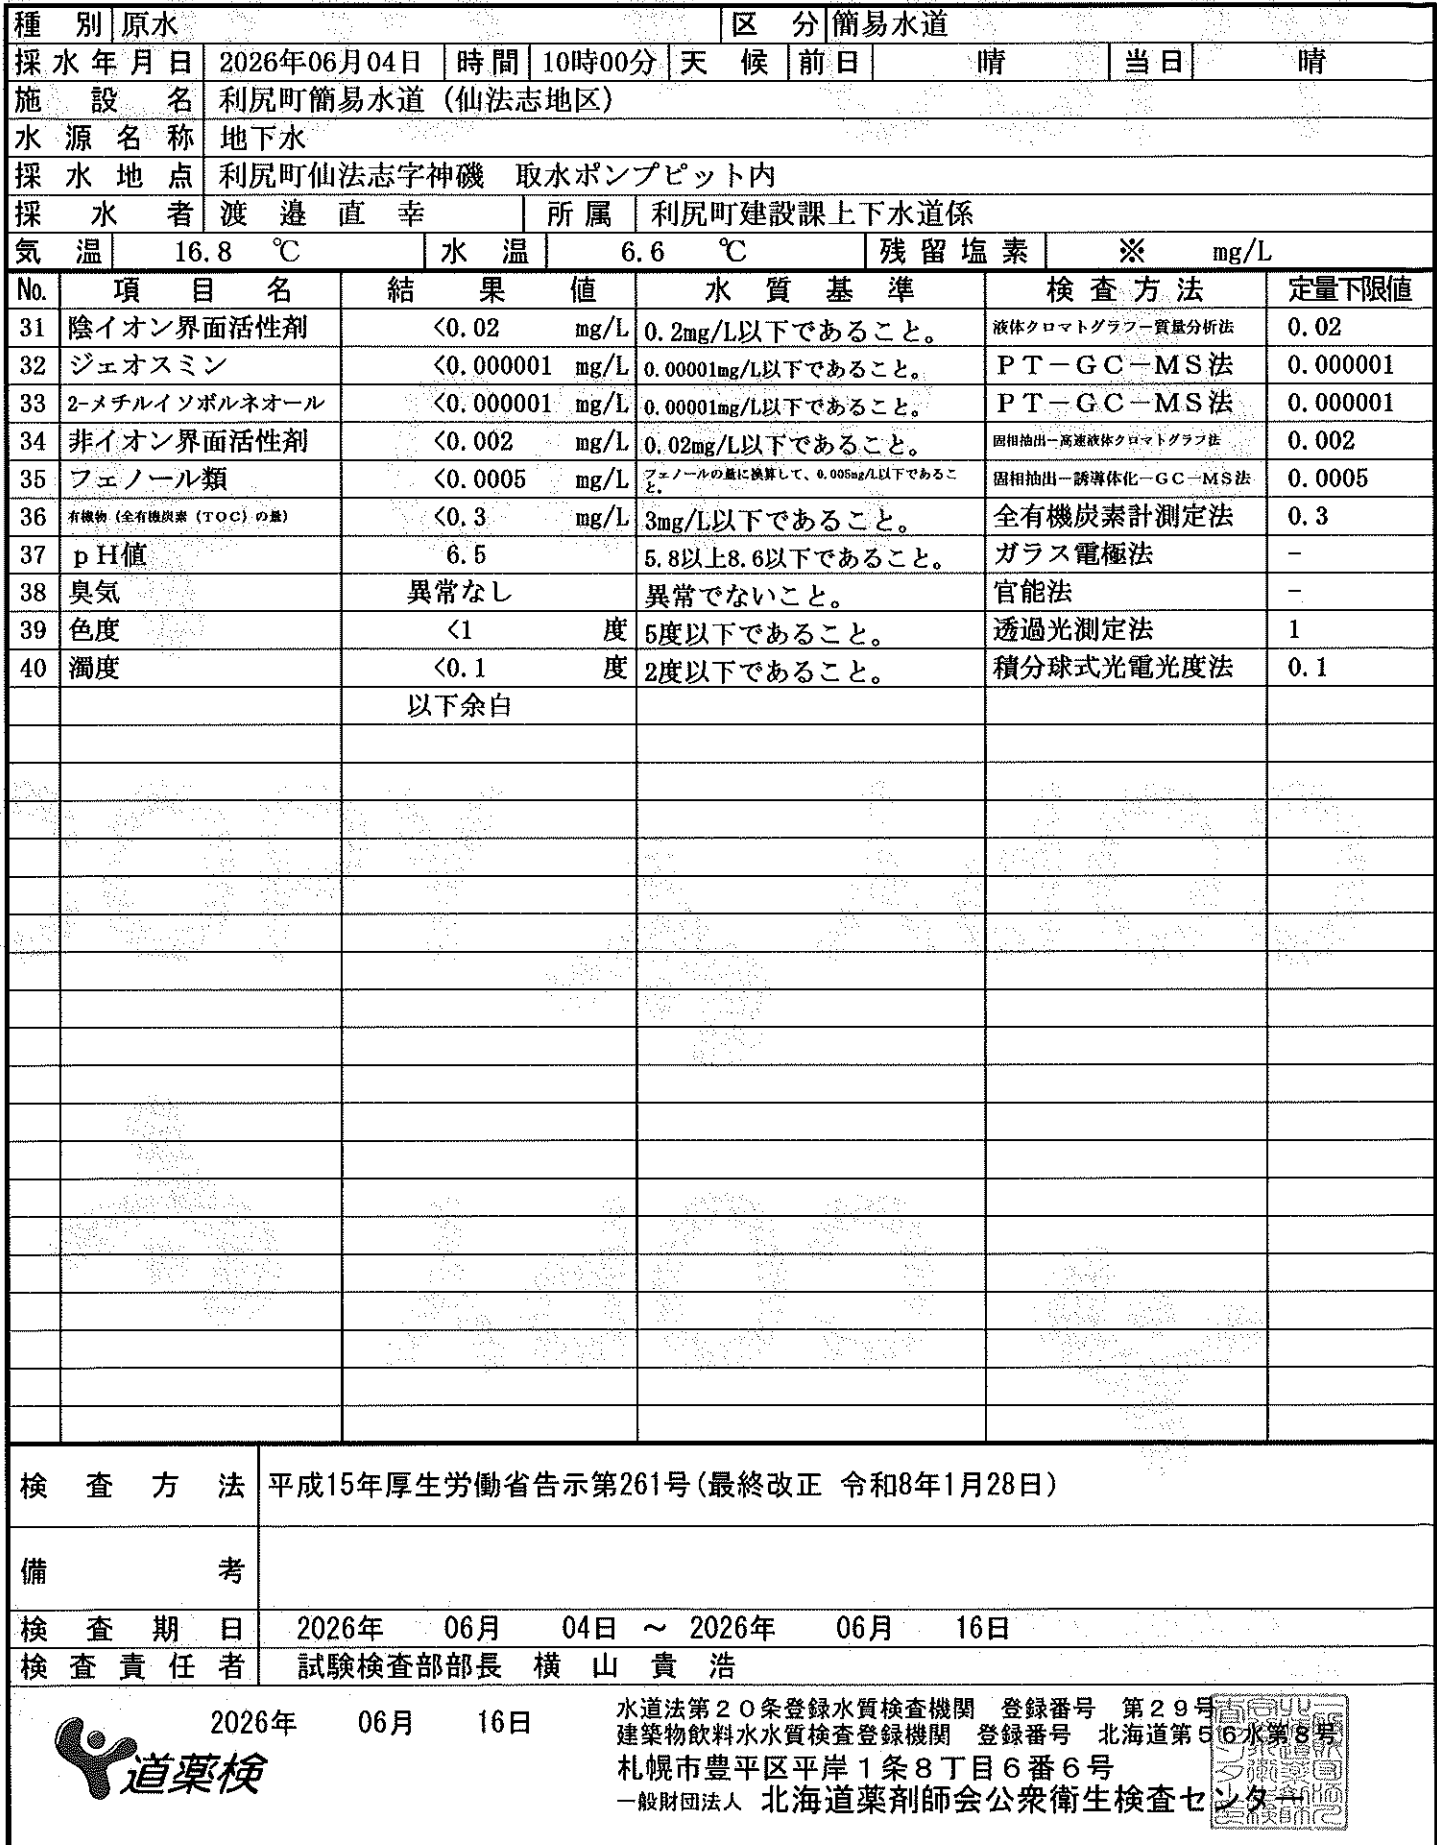 種 別 原水 区 分 簡易水道
採水年月日 2026年06月04日 時間 10時00分 天 候 前日 晴 当日 晴
施 設 名 利尻町簡易水道（仙法志地区）
水 源 名 称 地下水
採 水 地 点 利尻町仙法志字神磯 取水ポンプピット内
採 水 者 渡 邉 直 幸 所属 利尻町建設課上下水道係
気 温 16.8 ℃ 水 温 6.6 ℃ 残留塩素 ※ mg/L
No. 項 目 名 結 果 値 水 質 基 準 検査方法 定量下限値
31 陰イオン界面活性剤 <0.02 mg/L 0.2mg/L以下であること。 液体クロマトグラフ－質量分析法 0.02
32 ジェオスミン <0.000001 mg/L 0.00001mg/L以下であること。 ＰＴ－ＧＣ－ＭＳ法 0.000001
33 2-メチルイソボルネオール <0.000001 mg/L 0.00001mg/L以下であること。 ＰＴ－ＧＣ－ＭＳ法 0.000001
34 非イオン界面活性剤 <0.002 mg/L 0.02mg/L以下であること。 固相抽出－高速液体クロマトグラフ法 0.002
35 フェノール類 <0.0005 mg/L フェノールの量に換算して、0.005mg/L以下であること。 固相抽出－誘導体化－ＧＣ－ＭＳ法 0.0005
36 有機物（全有機炭素（ＴＯＣ）の量） <0.3 mg/L 3mg/L以下であること。 全有機炭素計測定法 0.3
37 ｐＨ値 6.5 5.8以上8.6以下であること。 ガラス電極法 －
38 臭気 異常なし 異常でないこと。 官能法 －
39 色度 <1 度 5度以下であること。 透過光測定法 1
40 濁度 <0.1 度 2度以下であること。 積分球式光電光度法 0.1
以下余白
検 査 方 法 平成15年厚生労働省告示第261号(最終改正 令和8年1月28日)
備 考
検 査 期 日 2026年 06月 04日 ～ 2026年 06月 16日
検査責任者 試験検査部部長 横 山 貴 浩
2026年 06月 16日
道薬検
水道法第２０条登録水質検査機関 登録番号 第２９号
建築物飲料水水質検査登録機関 登録番号 北海道第５６水第８号
札幌市豊平区平岸１条８丁目６番６号
一般財団法人 北海道薬剤師会公衆衛生検査センター